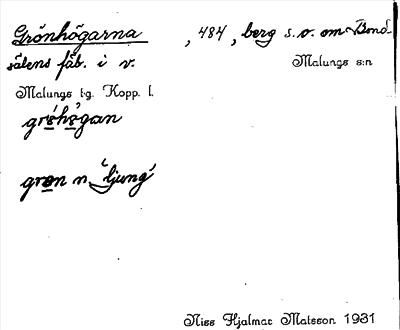 Grönhögarna, 484, berg s.o. om Bond-
sälens fäb. i v. Malungs s:n
Malungs tg. Kopp. l.
grø̀hø̀gan
grøn n. 'ljung'
Niss Hjalmar Matsson 1931